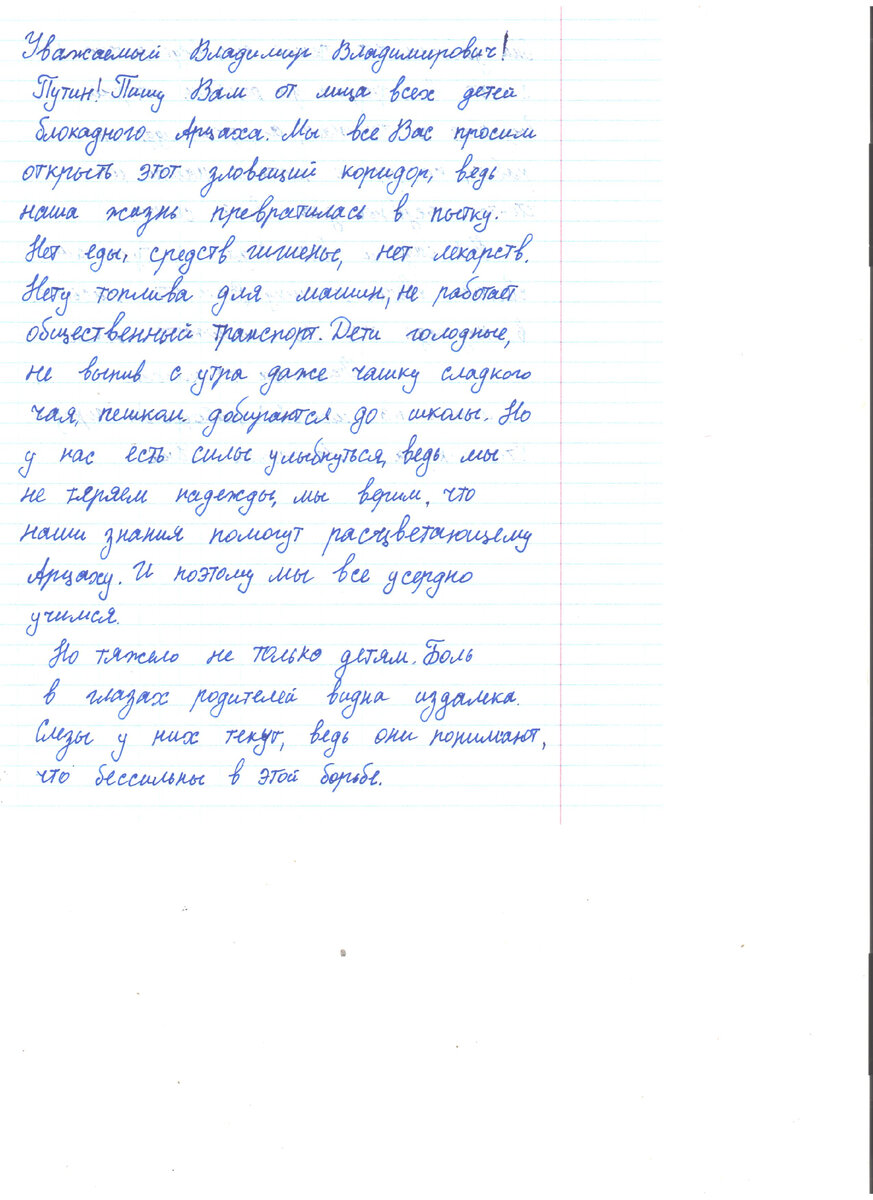 Уважаемый Владимир Владимирович!
Путин! Пишу Вам от лица всех детей
блокадного Арцаха. Мы все Вас просим
открыть этот зловещий коридор, ведь
наша жизнь превратилась в пытку.
Нет еды, средств гигиены, нет лекарств.
Нету топлива для машин, не работает
общественный транспорт. Дети голодные,
не выпив с утра даже чашку сладкого
чая, пешком добираются до школы. Но
у нас есть силы улыбнуться, ведь мы
не теряем надежды, мы верим, что
наши знания помогут расцветающему
Арцаху. И поэтому мы все усердно
учимся.
Но тяжело не только детям. Боль
в глазах родителей видна издалека.
Слезы у них текут, ведь они понимают,
что бессильны в этой борьбе.